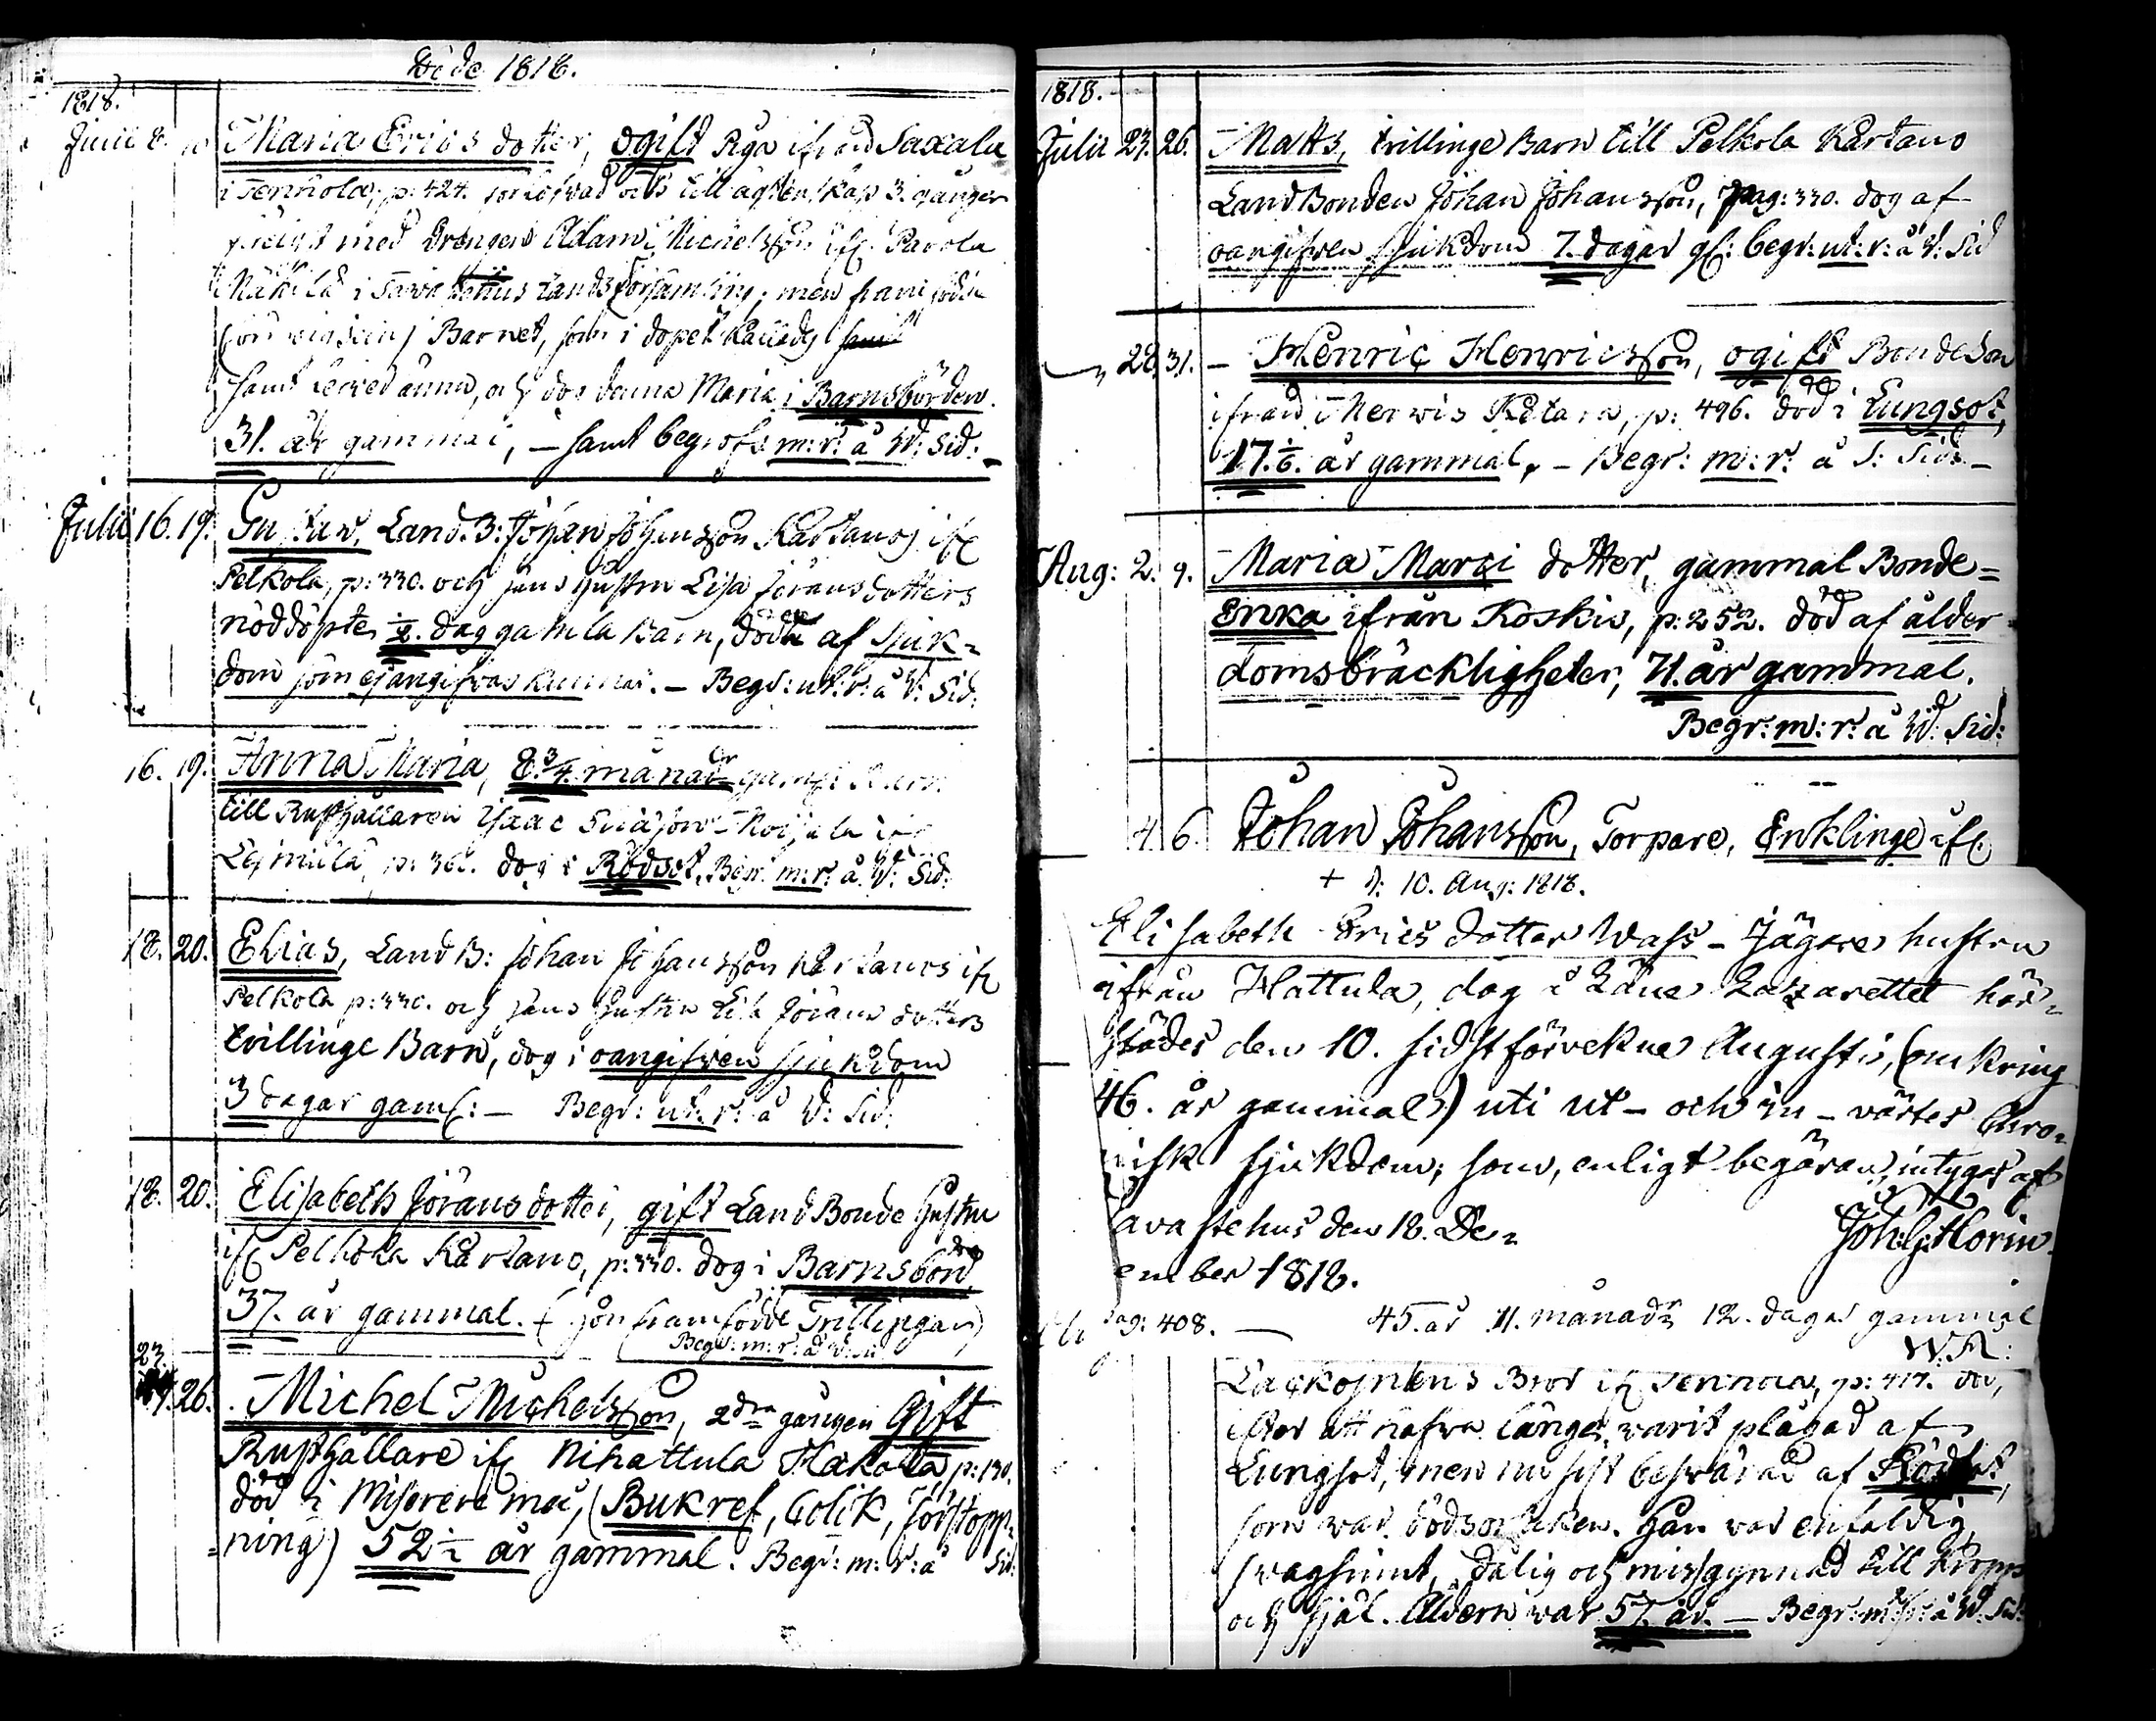 Döde 1818.
1818.
Junii 8. 10 Maria Erics dotter, ogift Piga ifrån Saxala
i Tennola, p: 424. förlofvad och till ägtenskap 3. gånger
med Drängen Adam Michelsson ifr. Parola
Mäkilä i Tavastehus Lands församling; men framfödde
Barnet, som i dopet kallades
samt lefved ännu, och dog denna Maria i Barnsbörden.
31. år gammal, – samt begrofs m: r: å W: Sid: –
Julii 16. 19. Gustaw, Land. B: Johan Johansson Kartanos ifr
Pelkola, p: 330. och hans hustru Lisa Jörans dotters
nöddöpte, ½. dag gamla Barn, döde af Sjuk-
dom som ej angifvas kunnat. – Begr: ut: r: å W: Sid:
16. 19. Anna Maria, 8. ¾. månader gamt Barn
till Rusthållaren Isaac
p: 36 . dog i Rödsot. Begr. m: r: å. W: Sid:
18. 20. Elias, Land B: Johan Johansson Kartanos ifr
Pelkola p: 330. och hans hustru Lisa Jörans dotters
trillinge Barn, dog i oangifven sjukdom
3 dagar gaml: – Begr: ut: r: å W: Sid:
18. 20. Elisabeth Jörans dotter, gift Land Bonde hustru
ifr Pelkola Kartano, p: 330. dog i Barnsbörd
37. år gammal. (hon framfödde Trillingar)
Begr: m: r: å W: Sid:
23. 26. Michel Michelsson, 2dra gången Gift
Rusthållare ifr Nihattula Hakala, p: 130.
död i Miserere mei, (Bukref, Colik, Förstopp-
ning) 52 ½ år gammal. Begr: m: r: å Sid:
1818.
Julii 23. 26. Matts, trillinge Barn till Pelkola Kartano
Land Bonden Johan Johansson, pag: 330. dog af
oangifven sjukdom 7. dagar gl: begr: ut: r: å W: Sid
„ 28. 31. – Henric Henricsson, ogift Bonde Son
ifrån Merwis Ketara, p: 496. död i Lungsot,
17. ½. år gammal, – Begr: m: r: å S: Sid: –
Aug: 2. 9. Maria Marci dotter, gammal Bonde=
Enka ifrån Koskis, p: 252. död af ålder
domsbräckligheter, 71. år gammal.
Begr: m: r: å W: Sid:
4. 6. Johan Johansson, Torpare, Enklinge ifr.
+ d: 10. Aug: 1818.
Elisabeth Erics dotter Wass – Jägare hustru
ifrån Hattula, dog å Läns Lazarettet här-
städes den 10. sidstförvekne Augusti, (omkring
46. år gammal) uti ut- och in- värtes Chro-
nisk sjukdom; som, enligt begäran, intygas af
avastehus den 18. De-
ember 1818.
Joh: G: Florin.
ag: 408. – 45. år 11. månader 12. dagar gammal
W. A:
Bror ifr Tennola, p: 417. död,
efter att hafva länge varit plågad af
Lungsot, men nu sist besvärad af Rödsot,
som war dödsorsaken. Han war enfaldig,
svagsint, dålig och missgynnad till kropp
och själ. Åldern war 57. år. – Begr: m: r: å W. Sid: